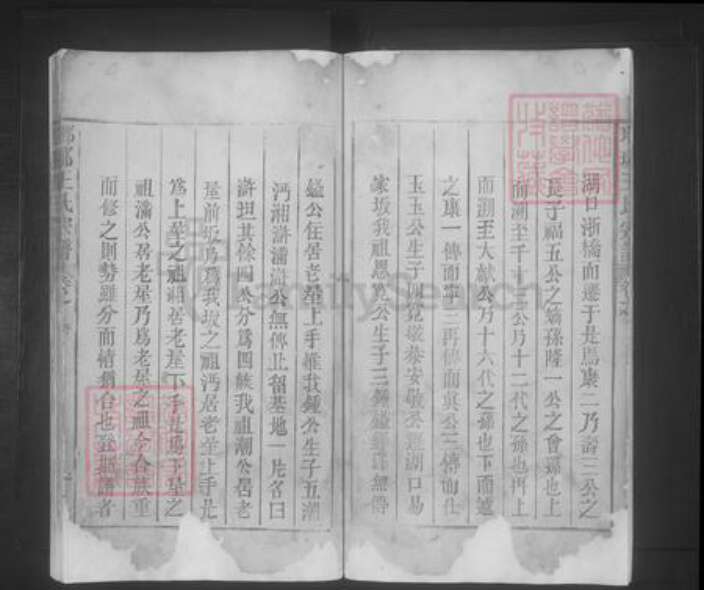 湖口浙橋而遷于是馬康二乃壽三公之
長子福五公之嫡孫隆一公之會孫也上
而溯至千十三公乃十二代之孫也再上
而溯至大獻公乃十六代之孫也下而遞
之康一傳而寧三再傳而眞公三傳而仕
玉玉公生子四寬敬恭安敬公遷湖口易
家坂我祖恩寬公生子三鍾鎰無傳
鎰公住居老屋上手惟我鍾公生子五潮
沔湘滸滿滸公無傳止留基地一片名曰
滸坦其餘四公分爲四族我祖潮公居老
屋前坂乃爲我坂之祖沔居老屋上手是
爲上屋之祖湘居老屋下手是爲下屋之
祖滿公居老屋乃爲老屋之祖今合族重
而修之則勢雖分而情猶合也登斯譜者
王氏宗譜
FamilySearch